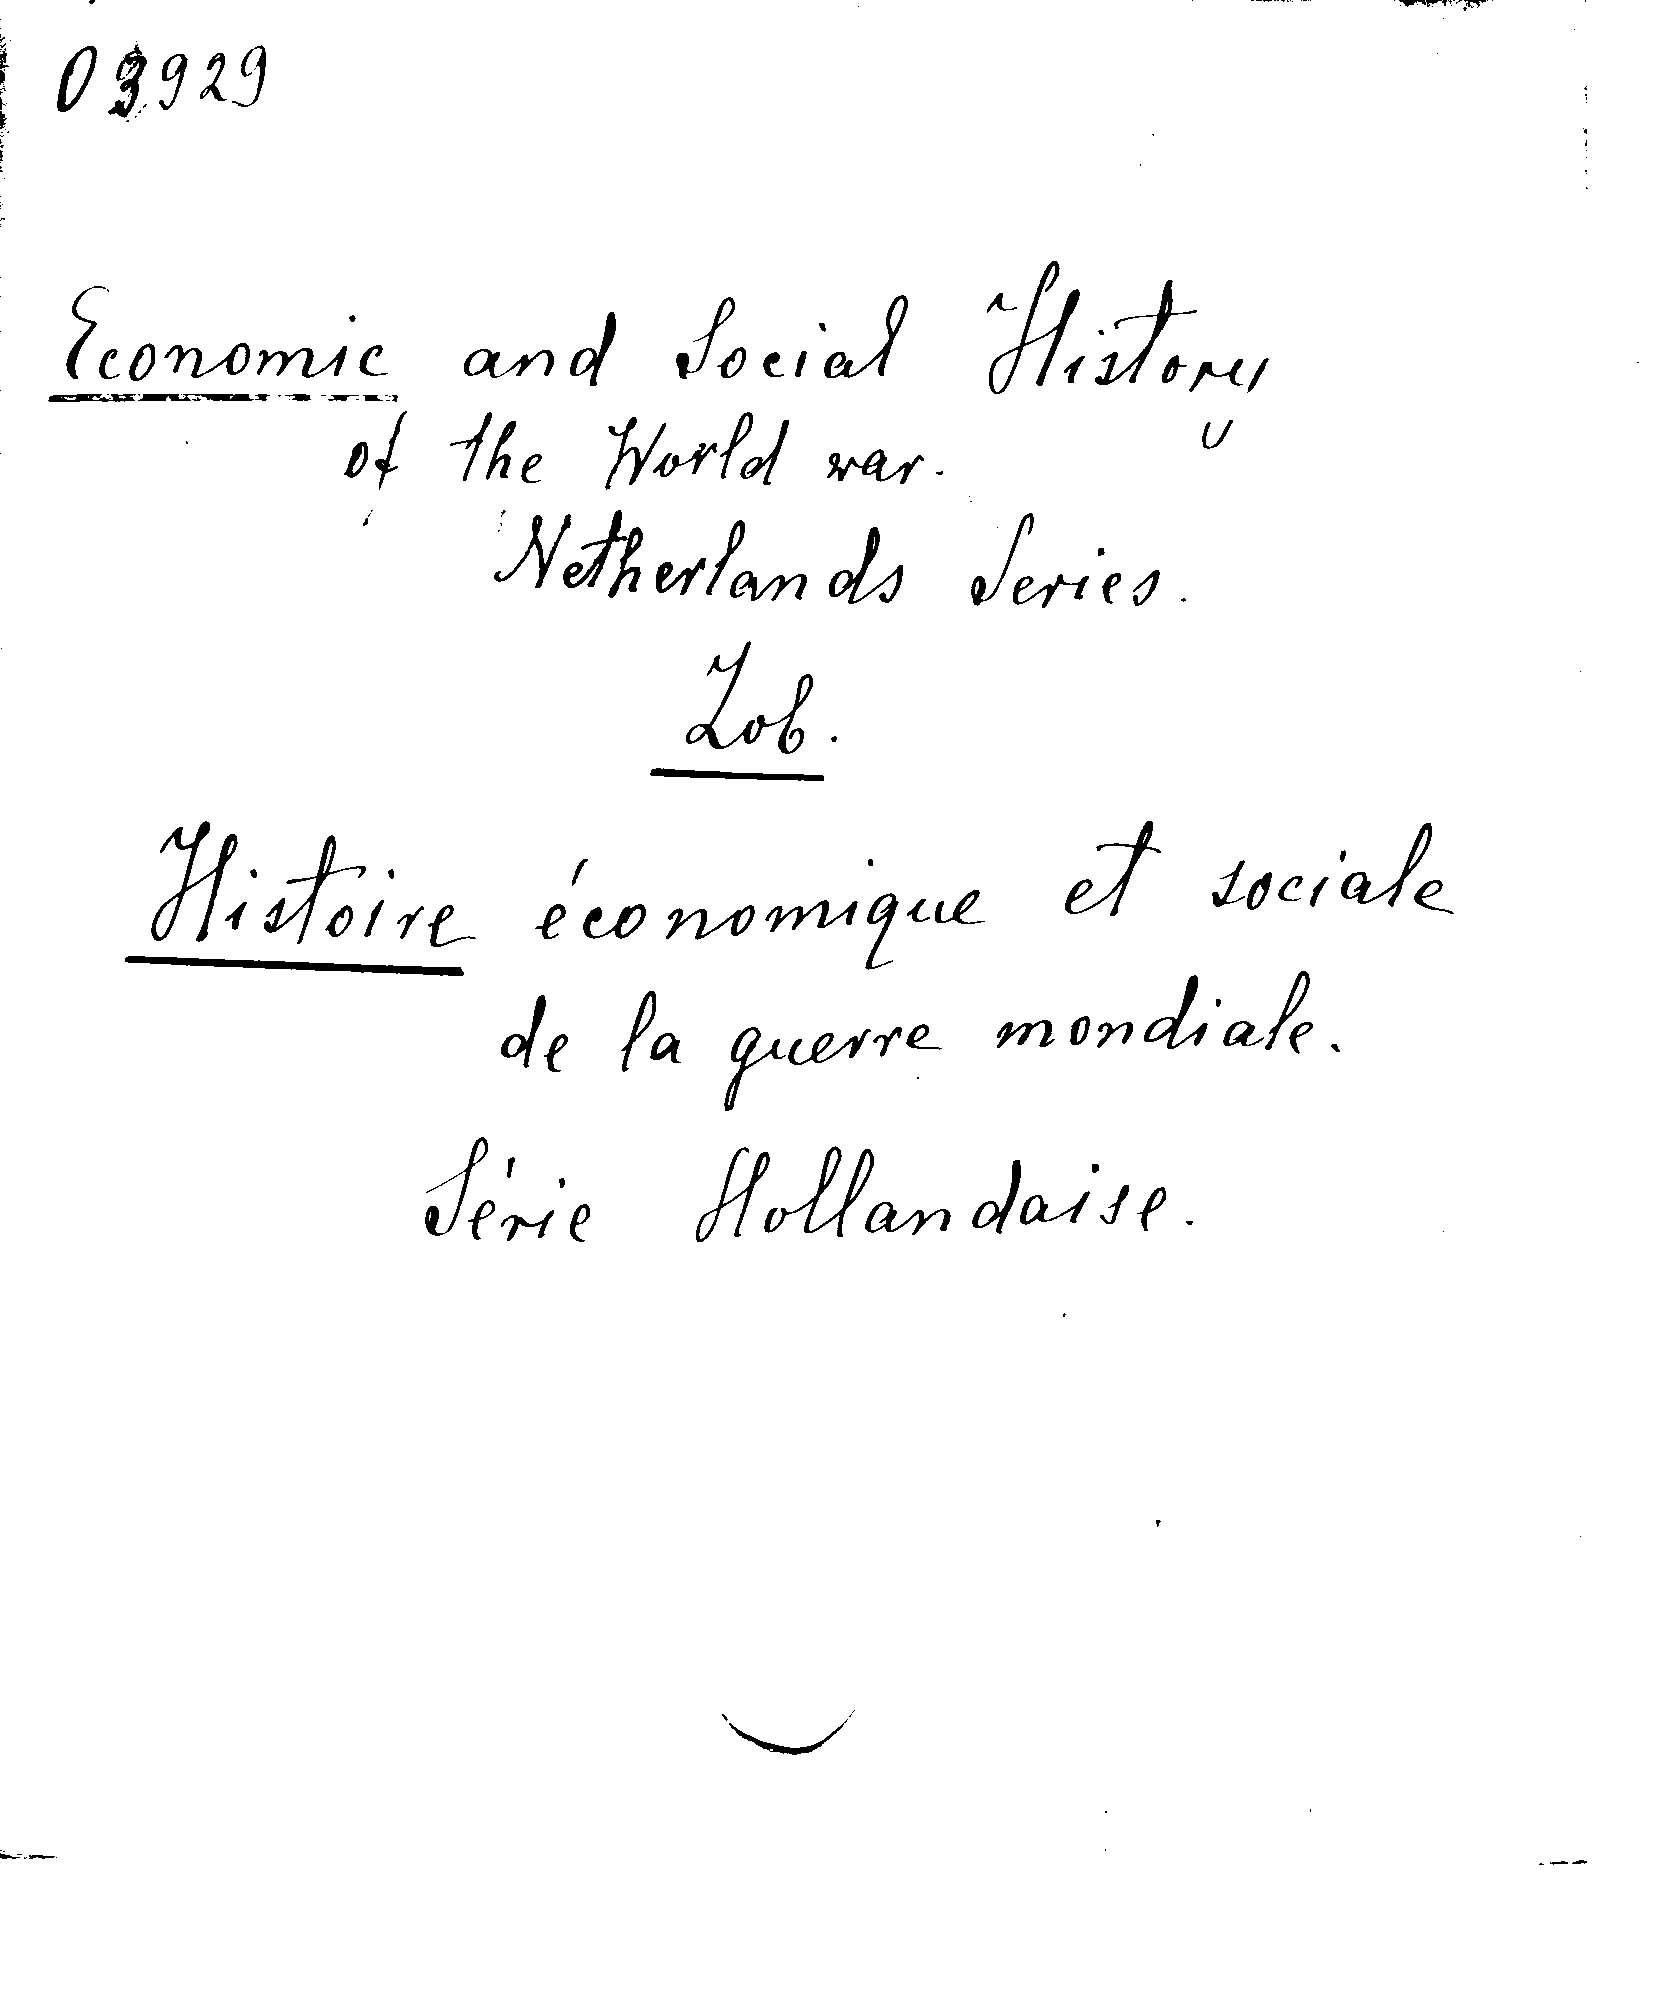 03929
Economic and Social History
of the World war.
Netherlands Series.
Zob.
Histoire économique et sociale
de la guerre mondiale.
Série Hollandaise.